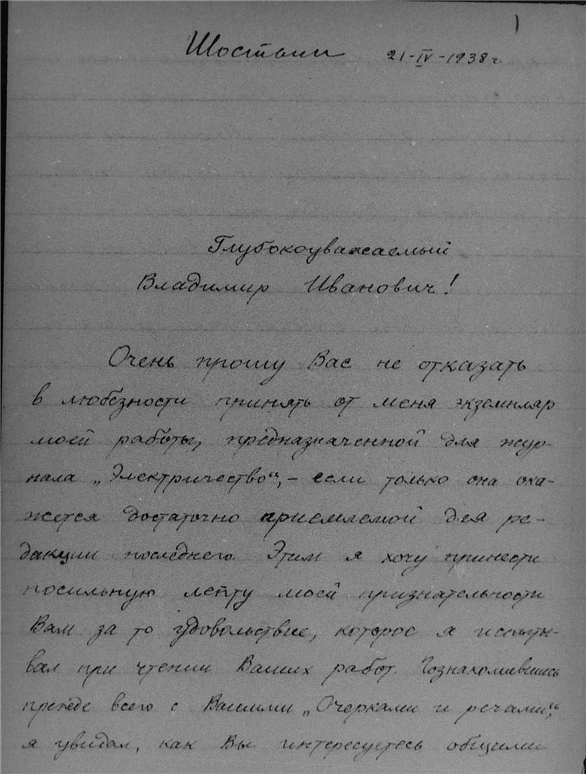 1
21-IV-1938 г.
Глубокоуважаемый
Владимир Иванович!
Очень прошу Вас не отказать
в любезности принять от меня экземпляр
моей работы, предназначенной для жур-
нала „Электричество“, – если только она ока-
жется достаточно приемлемой для ре-
дакции последнего. Этим я хочу принести
посильную лепту моей признательности
Вам за то удовольствие, которое я испыты-
вал при чтении Ваших работ. Познакомившись
прежде всего с Вашими „Очерками и речами“,
я увидал, как Вы интересуетесь общими